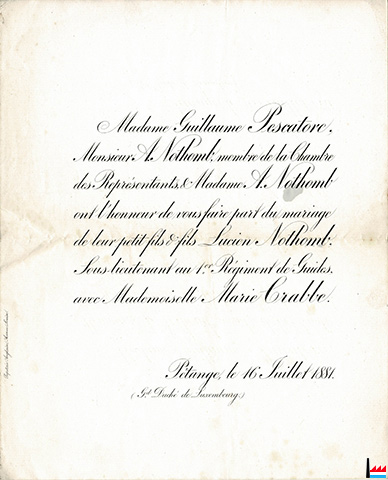 Madame Guillaume Pescatore,
Monsieur A. Nothomb, membre de la Chambre
des Représentants, & Madame A. Nothomb
ont l'honneur de vous faire part du mariage
de leur petit fils & fils Lucien Nothomb,
Sous-lieutenant au 1er Régiment de Guides,
avec Mademoiselle Marie Crabbe.
Pétange, le 16 Juillet 1881.
(Gd Duché de Luxembourg.)